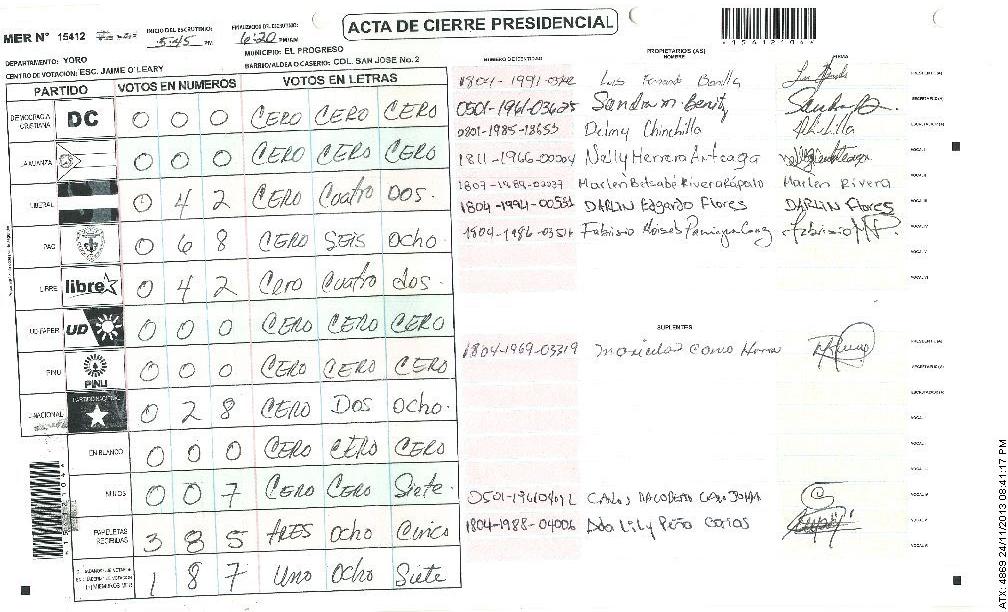 ACTA DE CIERRE PRESIDENCIAL
MER N° 15412
INICIO DEL ESCRUTINIO: 5:45 PM
FINALIZACION DEL ESCRUTINIO: 6:20 PM/AM
DEPARTAMENTO: YORO
MUNICIPIO: EL PROGRESO
CENTRO DE VOTACION: ESC. JAIME O'LEARY
BARRIO/ALDEA O CASERIO: COL. SAN JOSE No. 2
PARTIDO VOTOS EN NUMEROS VOTOS EN LETRAS
DEMOCRACIA CRISTIANA DC 0 0 0 CERO CERO CERO
ALIANZA 0 0 0 CERO CERO CERO
LIBERAL 0 4 2 CERO Cuatro Dos.
PAC 0 6 8 CERO SEIS Ocho.
LIBRE libre 0 4 2 Cero Cuatro dos.
UD-FAPER UD 0 0 0 CERO CERO CERO
PINU PINU 0 0 0 CERO CERO CERO
NACIONAL PARTIDO NACIONAL 0 2 8 CERO DOS Ocho.
EN BLANCO 0 0 0 CERO CERO CERO
NULOS 0 0 7 CERO CERO Siete.
PAPELETAS RECIBIDAS 3 8 5 TRES Ocho Cinco
1 8 7 Uno Ocho Siete
NUMERO DE IDENTIDAD
PROPIETARIOS (AS)
NOMBRE
FIRMAS
Luis Fernando Bonilla
PRESIDENTE (A)
0501-1961-03625 Sandra m. Benity
SECRETARIO (A)
0801-1985-18653 Delmy Chinchilla
ESCRUTADOR (A)
1811-1966-00004 Nelly Herrera Arteaga
VOCAL I
Marlen Betsabé Rivera Rápalo Marlen Rivera
VOCAL II
1804-1994-00531 DARLIN Edgardo Flores DARLIN Flores
VOCAL III
Fabrisio Moises
VOCAL IV
VOCAL V
VOCAL VI
SUPLENTES
PRESIDENTE (A)
1804-1969-03319
SECRETARIO (A)
ESCRUTADOR (A)
VOCAL I
VOCAL II
VOCAL III
VOCAL IV
1804-1988-04006 Ada Lily Peña
VOCAL V
VOCAL VI
ATX: 4869 24/11/2013 08:41:17 PM